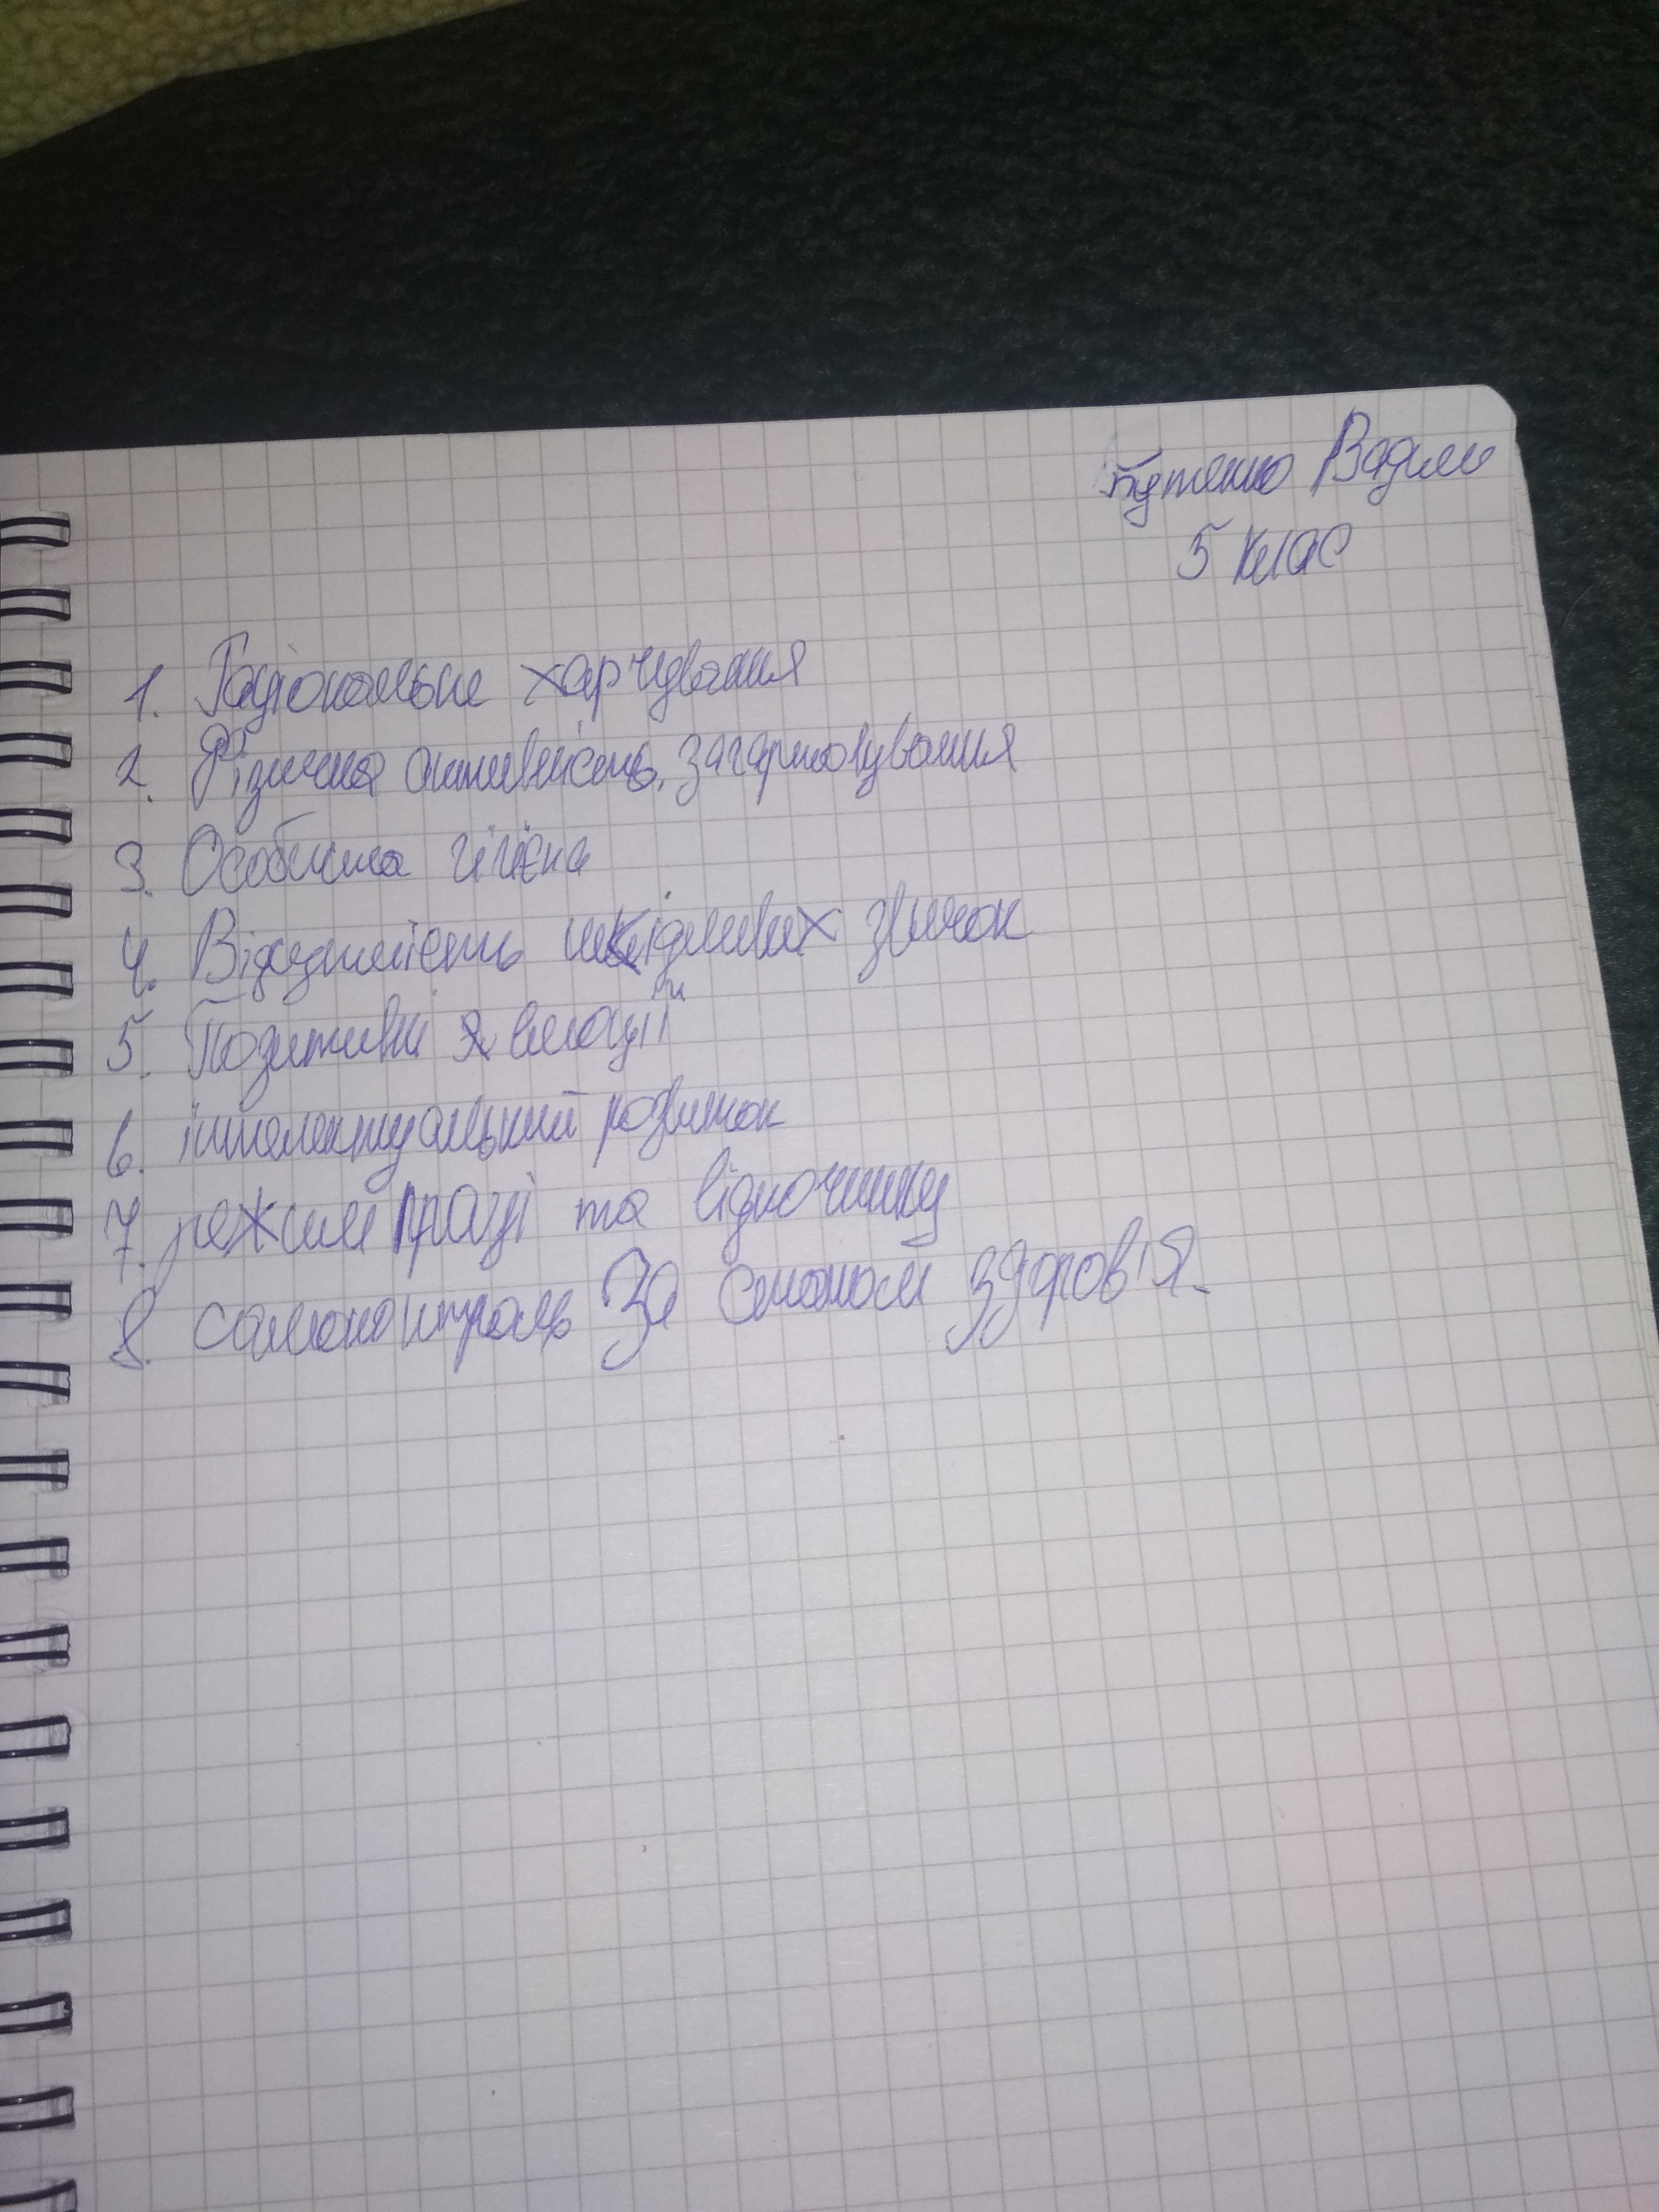 Бутенко Вадим
5 клас
1. Раціональне харчування
2. Фізична активність, загартовування
3. Особиста гігієна
4. Відсутність шкідливих звичок
5. Позитивні емоції
6. інтелектуальний розвиток
7. режим праці та відпочинку
8. самоконтроль За станом здоров'я.